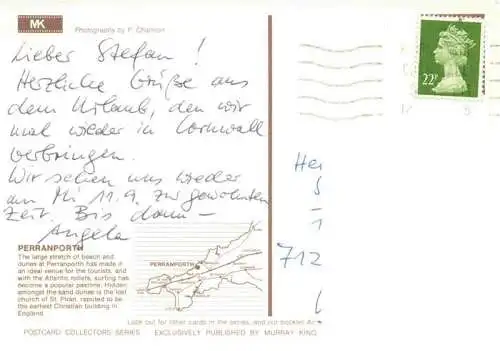 MK
Photography by P. Charlton
22P
Lieber Stefan!
Herzliche Grüße aus
dem Urlaub, den wir
mal wieder in Cornwall
verbringen.
Wir sehen uns wieder
am Mi 11.9. zur gewohnten
Zeit. Bis dann –
Angela
Her
712
PERRANPORTH
The large stretch of beach and
dunes at Perranporth has made it
an ideal venue for the tourists, and
with the Atlantic rollers, surfing has
become a popular pastime. Hidden
amongst the sand dunes is the lost
church of St. Piran, reputed to be
the earliest Christian building in
England
PERRANPORTH
Look out for other cards in the series, and our booklet
POSTCARD COLLECTORS SERIES EXCLUSIVELY PUBLISHED BY MURRAY KING